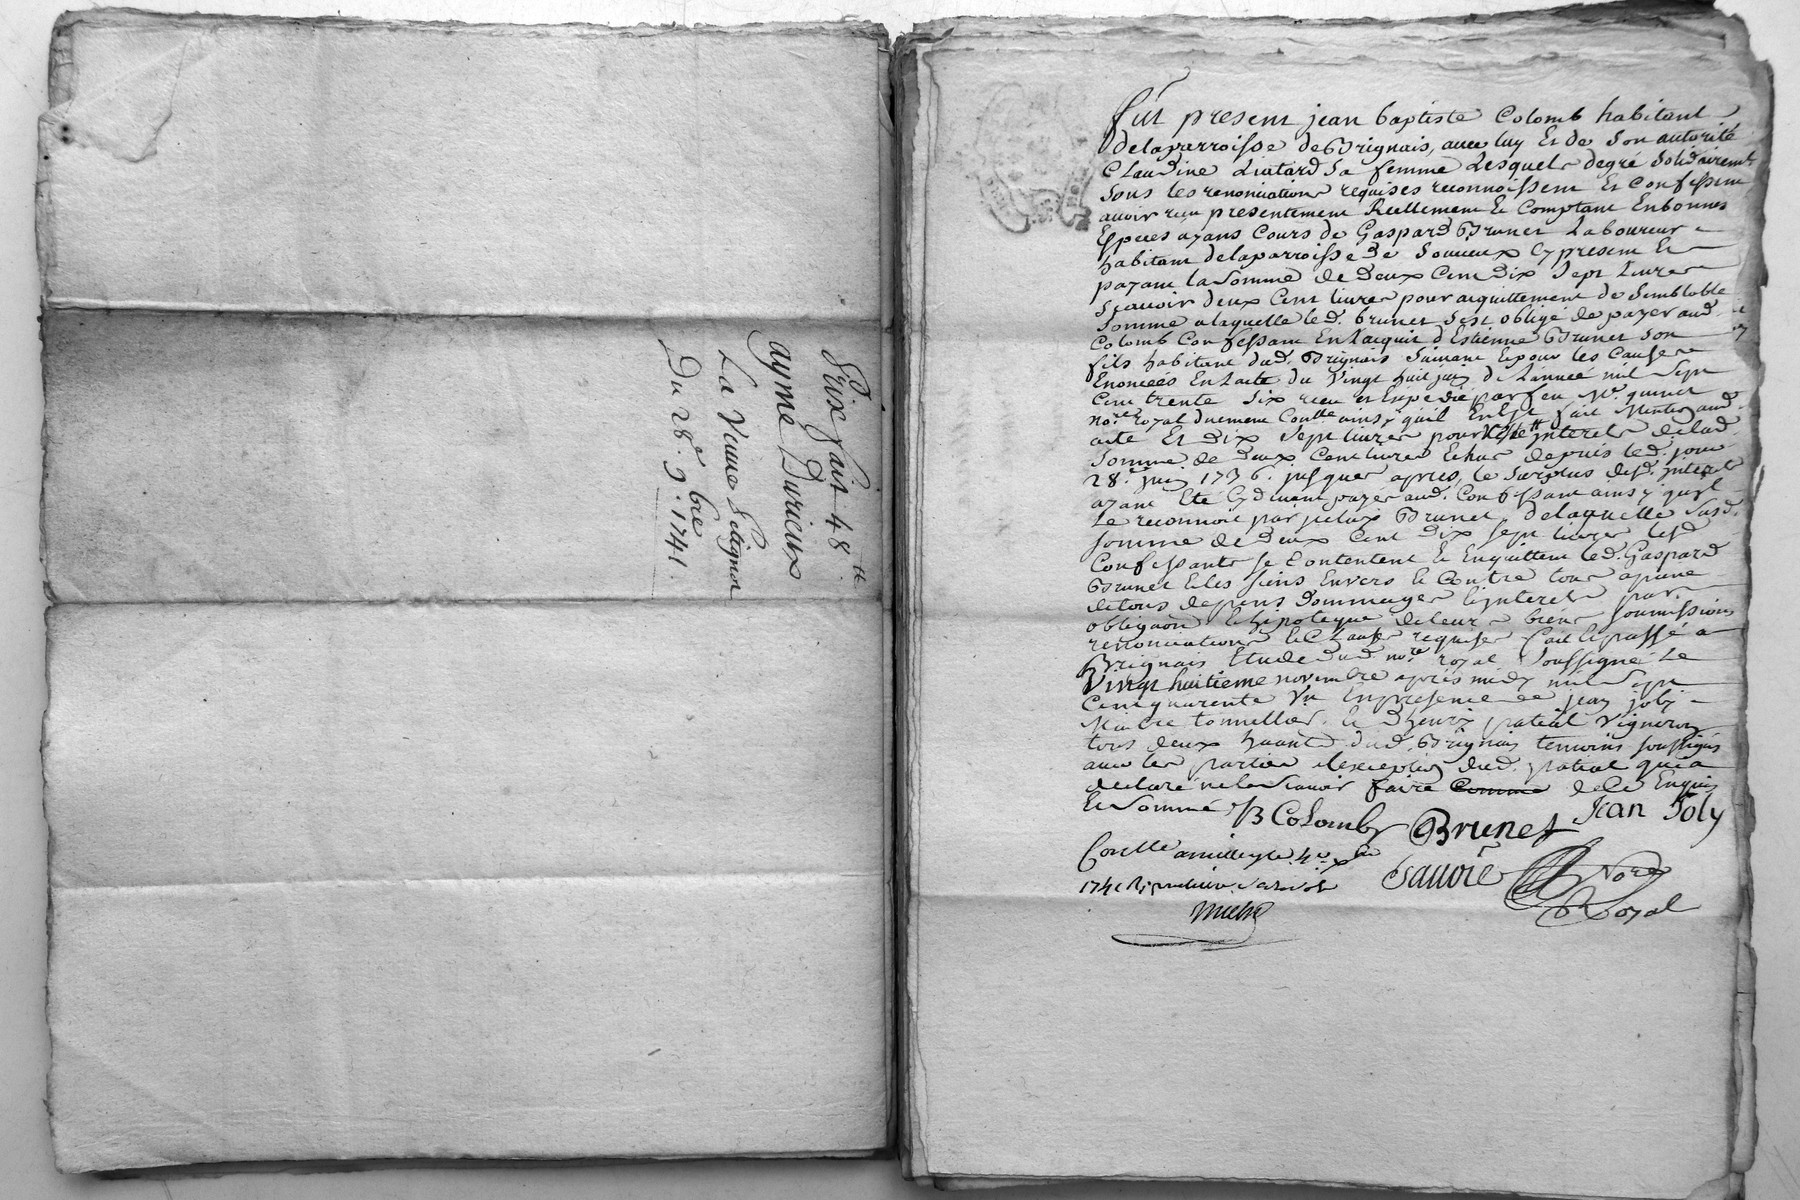 Prix fait 48tt.
ayme Durieux
La Veuve Guignon
Du 28e. 9bre. 1741.
fut present jean baptiste Colomb habitant
delaparroisse de Brignais, avec luy Et de Son autorité
Claudine Liatard Sa femme Lesquels degré Solidairemt
Sous les renonciations requises reconnoissent Et Confessent
avoir recu presentement Reellement Et Comptant Enbonnes
Especes ayans Cours de Gaspard Brunet Laboureur
habitant delaparroisse de Soucieux Cy present Et
payant la Somme de Deux Cent Dix Sept Livres
Scavoir deux Cent livres pour acquittement de Semblable
Somme alaquelle led. brunet S'est obligé de payer aud.
Colomb Confessant En L'acquit d'Estienne Brunet Son
fils habitant dud. Brignais Suivant Et pour les Causes
Enoncées En Lacte du Vingt huit juin de L'année mil Sept
Cent trente Six recu Et Expedié par feu Me. quinet
nore. Royal duement Conllé ainsy quil En Est fait Mention aud.
acte Et Dix Sept livres pour interets delad.
Somme de Deux Cent livres Echus depuis led. jour
28e. juin 1736. jusques apres, le Surplus desd. interets
ayant Eté Cy devant payer aud. Confessant ainsy quil
Le reconnoit par Brunet, delaquelle Susd.
Somme de Deux Cent Dix Sept livres lesd.
Confessants Se Contentent Et Enquittent led. Gaspard
Brunet Et les Siens Envers Et Contre tous apeine
detous depens Dommages Et interets par
obligaon Et hipoteque deleurs biens Soumissions
renonciations Et Clauses requises fait Et passé a
Brignais Etude dud nore royal Soussigné Le
Vingt huitieme novembre apres midy mil Sept
Cent quarente Un En presence de jean joly
Maitre tonnellier Et D'henry patial Vigneron
tous deux hauant dud. Brignais temoins Soussignés
avec les parties al'exception dud. patial qui a
declaré ne le Scavoir faire Comme dece Enquis
Et Sommé J B Colomb Brunet Jean Joly
Conllé amilleryle 4e. xbre Sauvoie Nore
1741 R Royal